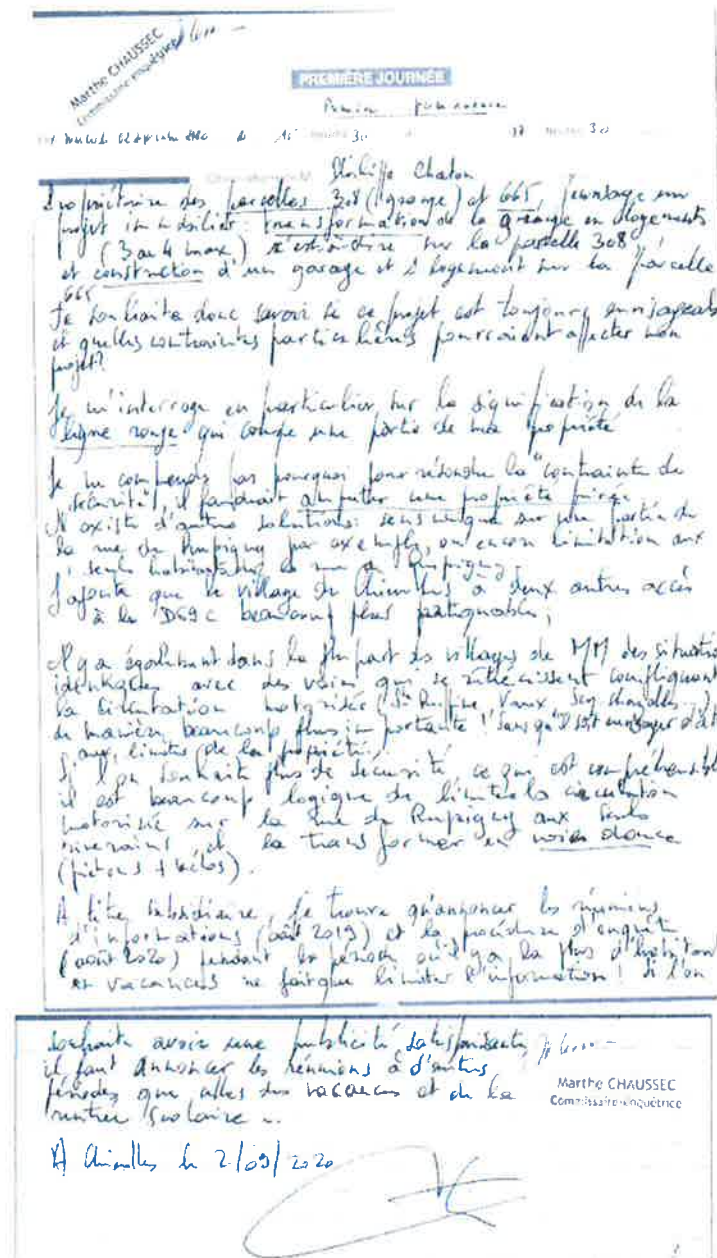 Marthe CHAUSSEC
Commissaire enquêtrice
PREMIÈRE JOURNÉE
Première permanence
Mercredi 02 septembre 2020 de 15 heures 30 à 17 heures 30
Philippe Chaton
Propriétaire des parcelles 308 (grange) et 665 j'envisage un
projet immobilier : transformation de la grange en logements
(3 ou 4 max) c'est à dire sur la parcelle 308
et construction d'un garage et 1 logement sur la parcelle
665
Je souhaite donc savoir si ce projet est toujours envisageable
et quelles contraintes particulières pourraient affecter mon
projet?
Je m'interroge en particulier sur la signification de la
ligne rouge qui coupe une partie de ma propriété
Je ne comprends pas pourquoi pour résoudre la "contrainte de
sécurité", il faudrait amputer une propriété privée.
Il existe d'autres solutions: sens unique sur une partie de
la rue de Rupigny par exemple, ou encore limitation aux
seuls habitants la rue de Rupigny.
J'ajoute que le village de Chieulles a deux autres accès
à la D69C beaucoup plus pratiquables;
Il y a également dans la plupart des villages de MM des situations
identiques avec des voies qui se rétrécissent compliquant
la circulation motorisée (Ste Ruffine, Vaux, Scy chazelles...)
de manière beaucoup plus importante ! sans qu'il soit envisagé
aux limites de la propriété.
Si l'on souhaite plus de sécurité ce qui est compréhensible
il est beaucoup logique de limiter la circulation
motorisée sur la rue de Rupigny aux seuls
riverains et la transformer en voie douce
(piétons + vélos).
A titre subsidiaire, je trouve qu'annoncer les réunions
d'informations (août 2019) et la procédure d'enquête
(août 2020) pendant les périodes où il y a le plus d'habitants
en vacances ne fait que limiter l'information ! Si l'on
souhaite avoir une publicité satisfaisante,
il faut annoncer les réunions à d'autres
périodes que celles des vacances et de la
rentrée scolaire.
Marthe CHAUSSEC
Commissaire enquêtrice
A Chieulles le 2/09/2020